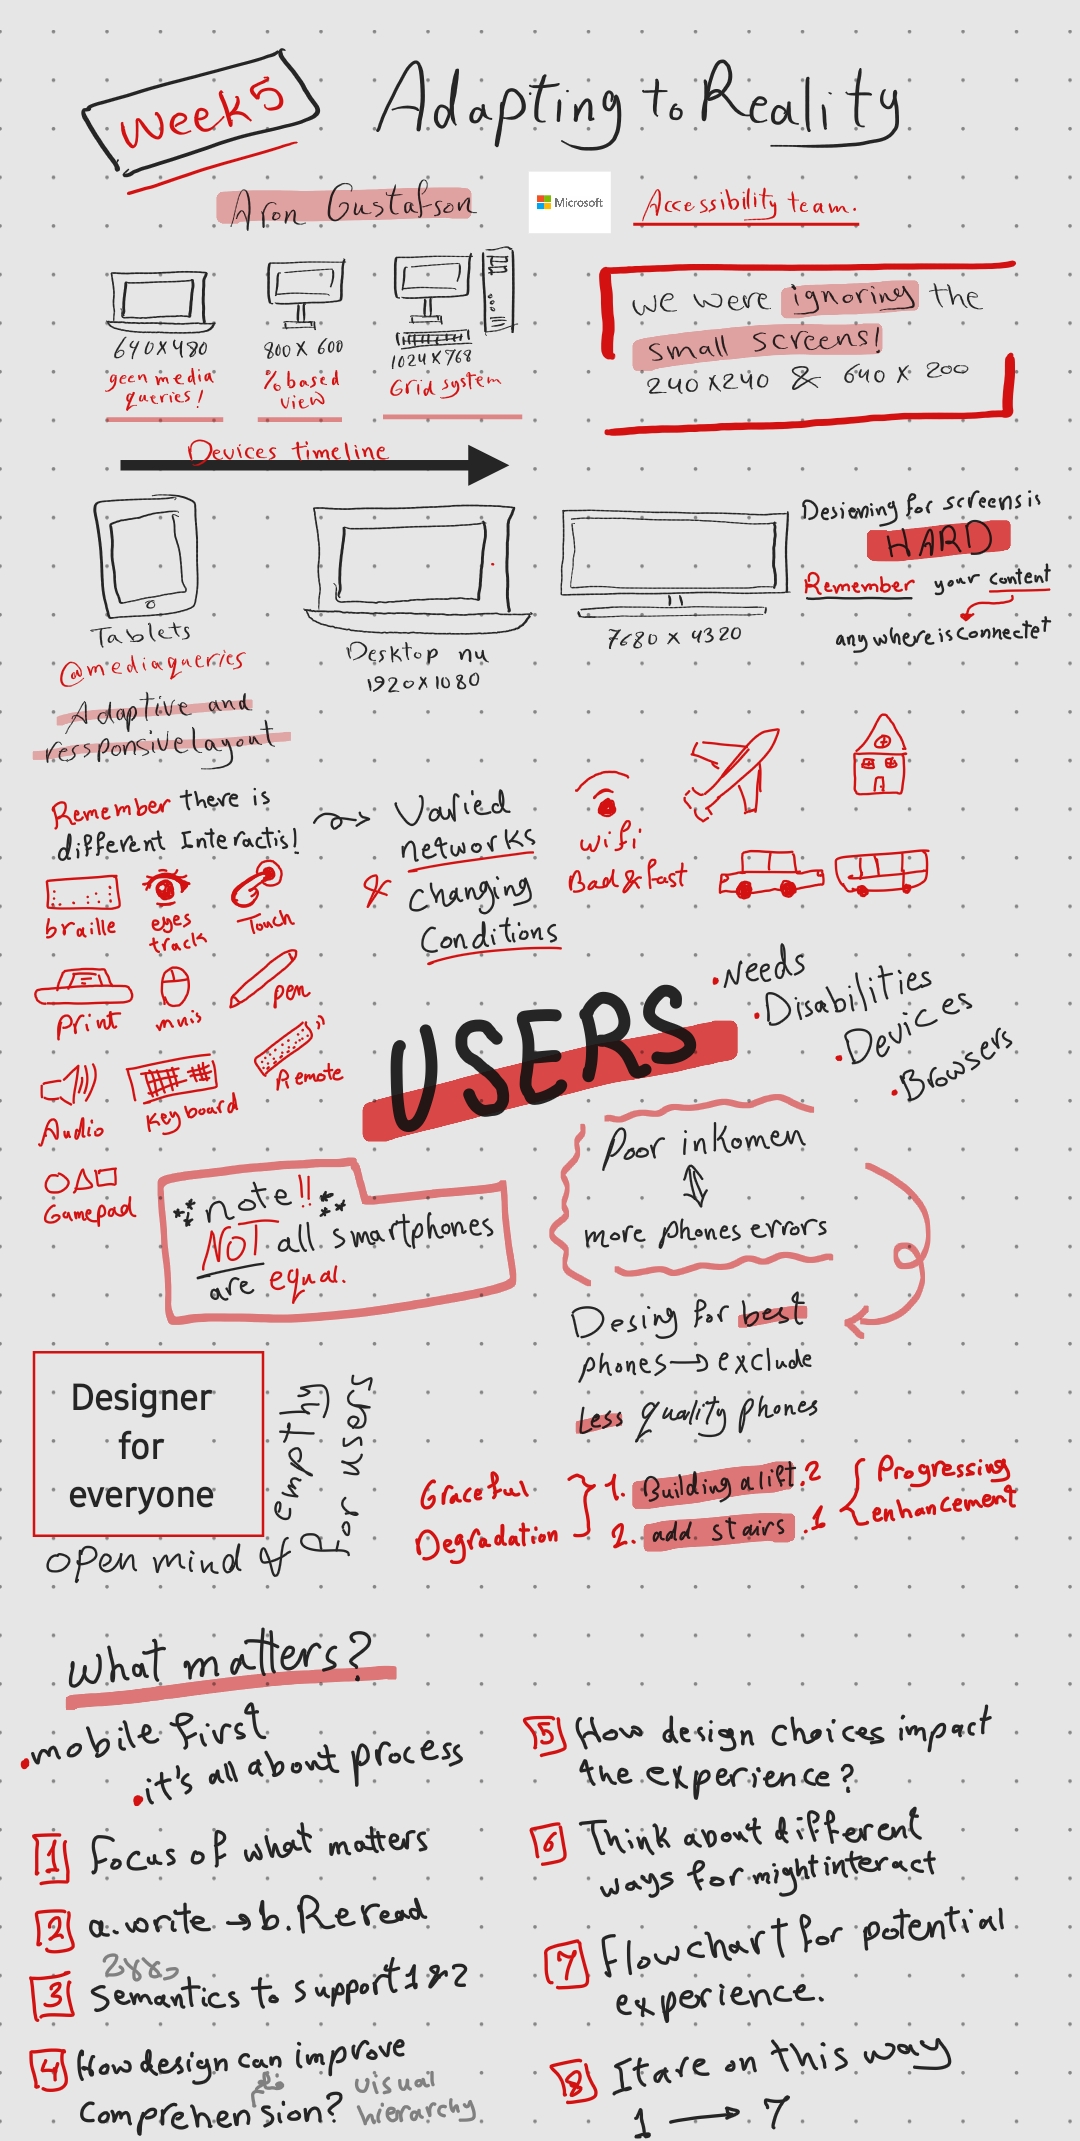 week 5
Adapting to Reality
Aron Gustafson
Microsoft
Accessibility team.
640x480
geen media
queries!
800 x 600
% based
view
1024x768
Grid system
we were ignoring the
small screens!
240 x240 & 640 x 200
Devices timeline
Tablets
@mediaqueries
Adaptive and
ressponsive layout
Desktop nu
1920x1080
7680 x 4320
Designing for screens is
HARD
Remember your content
any where is connectet
Remember there is
different Interactis!
Varied
networks
& Changing
Conditions
wifi
Bad & fast
braille
eyes
track
Touch
Print
mnis
pen
Audio
Keyboard
Remote
Gamepad
USERS
.Needs
.Disabilities
.Devices
.Browsers
**note!!**
NOT all smartphones
are equal.
Poor inkomen
more phones errors
Desing for best
phones → exclude
Less quality phones
Designer
for
everyone
open mind & empthy
for users
Graceful
Degradation
1. Building a lift .2
2. add stairs .1
Progressing
enhancement
What matters?
.mobile first
.it's all about process
1 Focus of what matters
2 a.write → b.Reread
3 Semantics to support 1 & 2
4 How design can improve
comprehension? visual
hierarchy
5 How design choices impact
the experience?
6 Think about different
ways for might interact
7 Flowchart for potential
experience.
8 It are on this way
1 → 7